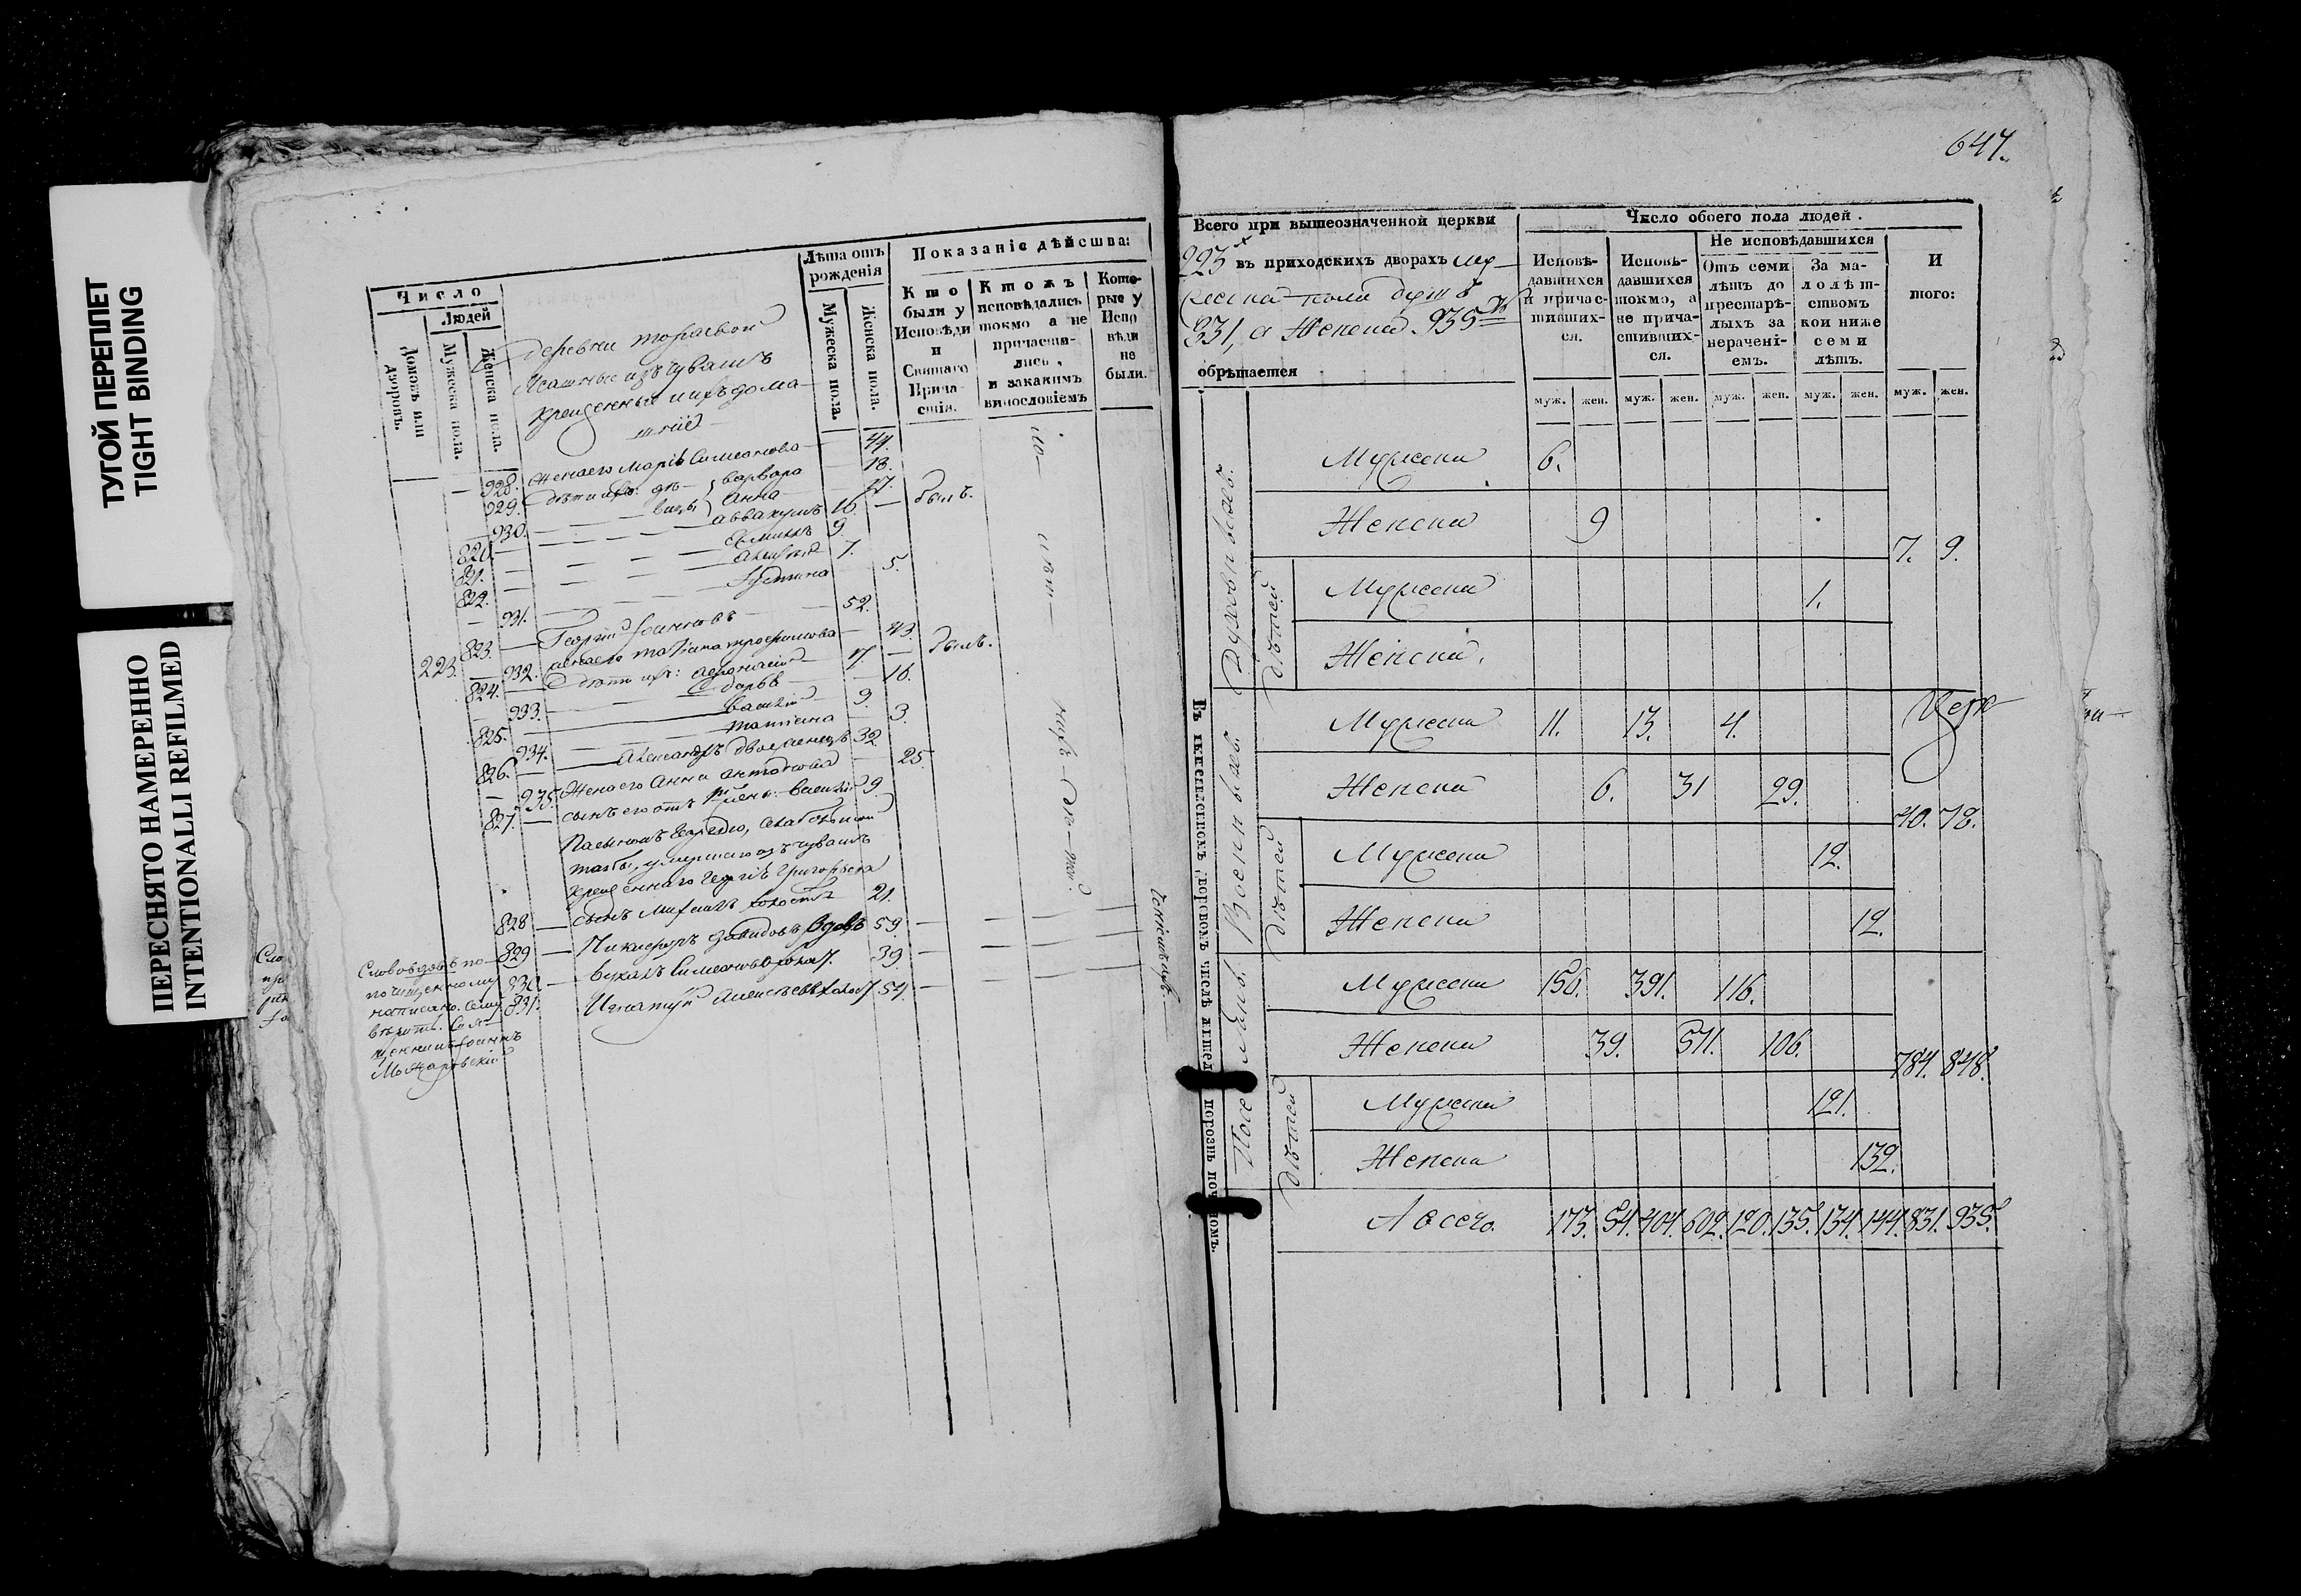 ТУГОЙ ПЕРЕПЛЕТ
TIGHT BINDING
ПЕРЕСНЯТО НАМЕРЕННО
INTENTIONALLI REFILMED
Число
Людей
Домовъ или дворовъ.
Мужеска пола.
Женска пола.
Лѣта отъ рожденія
Мужеска пола.
Женска пола.
Показаніе дѣйства:
Кто были у Исповѣди и Святаго Причастія.
Ктожъ исповѣдались токмо а не причастились, и закакимъ винословіемъ
Которые у Исповѣди не были.
деревни
Ясашные изъ чувашъ
крещенные и ихъ домашніе
928. Жена его Марія Симеонова 44.
929. Дѣти ихъ: дѣ- варвара 18.
930. вицы Анна 17.
820. аввакумъ 16. былъ.
821. 9.
822. 7.
931. 5.
223. 823. Георгій Іоанновъ 52.
932. жена его татіана трофимова 43.
824. Дѣти ихъ: 17. былъ.
933. дарья 16.
825. василій 9.
934. татіана 3.
826. александръ двоеженецъ 32.
935. Жена его Анна 25
827. сынъ его отъ василій 9.
умершаго изъ чувашъ
крещеннаго Георгія Григорьева
828 сынъ Михаилъ холостъ 21.
829 Никифоръ Давидовъ вдовъ 59.
830. Симеоновъ 39.
831. Игнатій Алексѣевъ 54.
Слово вдовъ по
почищенному
написано. Сему
вѣрить. Свя-
щенникъ Іоаннъ
Можаровскій
647.
Всего при вышеозначенной церкви
223х въ приходскихъ дворахъ му-
жеска пола душъ
831, а Женска 935ть
обрѣтается
Число обоего пола людей.
Исповѣдавшихся и причастившихся.
Исповѣдавшихся токмо, а не причастившихся.
Не исповѣдавшихся
Отъ семи лѣтъ до престарѣлыхъ за нераченіемъ.
За малолѣтствомъ кои ниже семи лѣтъ.
Итого:
муж. жен. муж. жен. муж. жен. муж. жен. муж. жен.
Духовныхъ.
Мужеска 6.
Женска 9
7. 9.
дѣтей
Мужеска 1.
Женска.
Военныхъ.
Мужеска 11. 13. 4.
Женска 6. 31 29.
40. 78.
дѣтей
Мужеска 12.
Женска 12.
Поселянъ.
Мужеска 156. 391. 116.
Женска 39. 571. 106.
784. 848.
дѣтей
Мужеска 121.
Женска 132.
А всего. 173. 54. 404. 602. 120. 135. 134. 144. 831. 935.